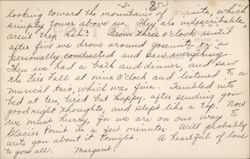 -3-
looking toward the mountains of granite, which
simply tower above us. They are indescribable,
aren't they Lich? From three o'clock until
after five we drove around Yosemite on a
personally conducted and
then we had a bath and dinner, and saw
the Fire Fall at nine o'clock and listened to a
musical trio, which was fine. Tumbled into
bed at ten, tired but happy, after sending you
goodnight thoughts. I slept like a top. Now
we must hurry, for we are on our way to
Glacier Point in a few minutes. Will probably
write you about it tonight. A heartful of love
to you all. Margaret.